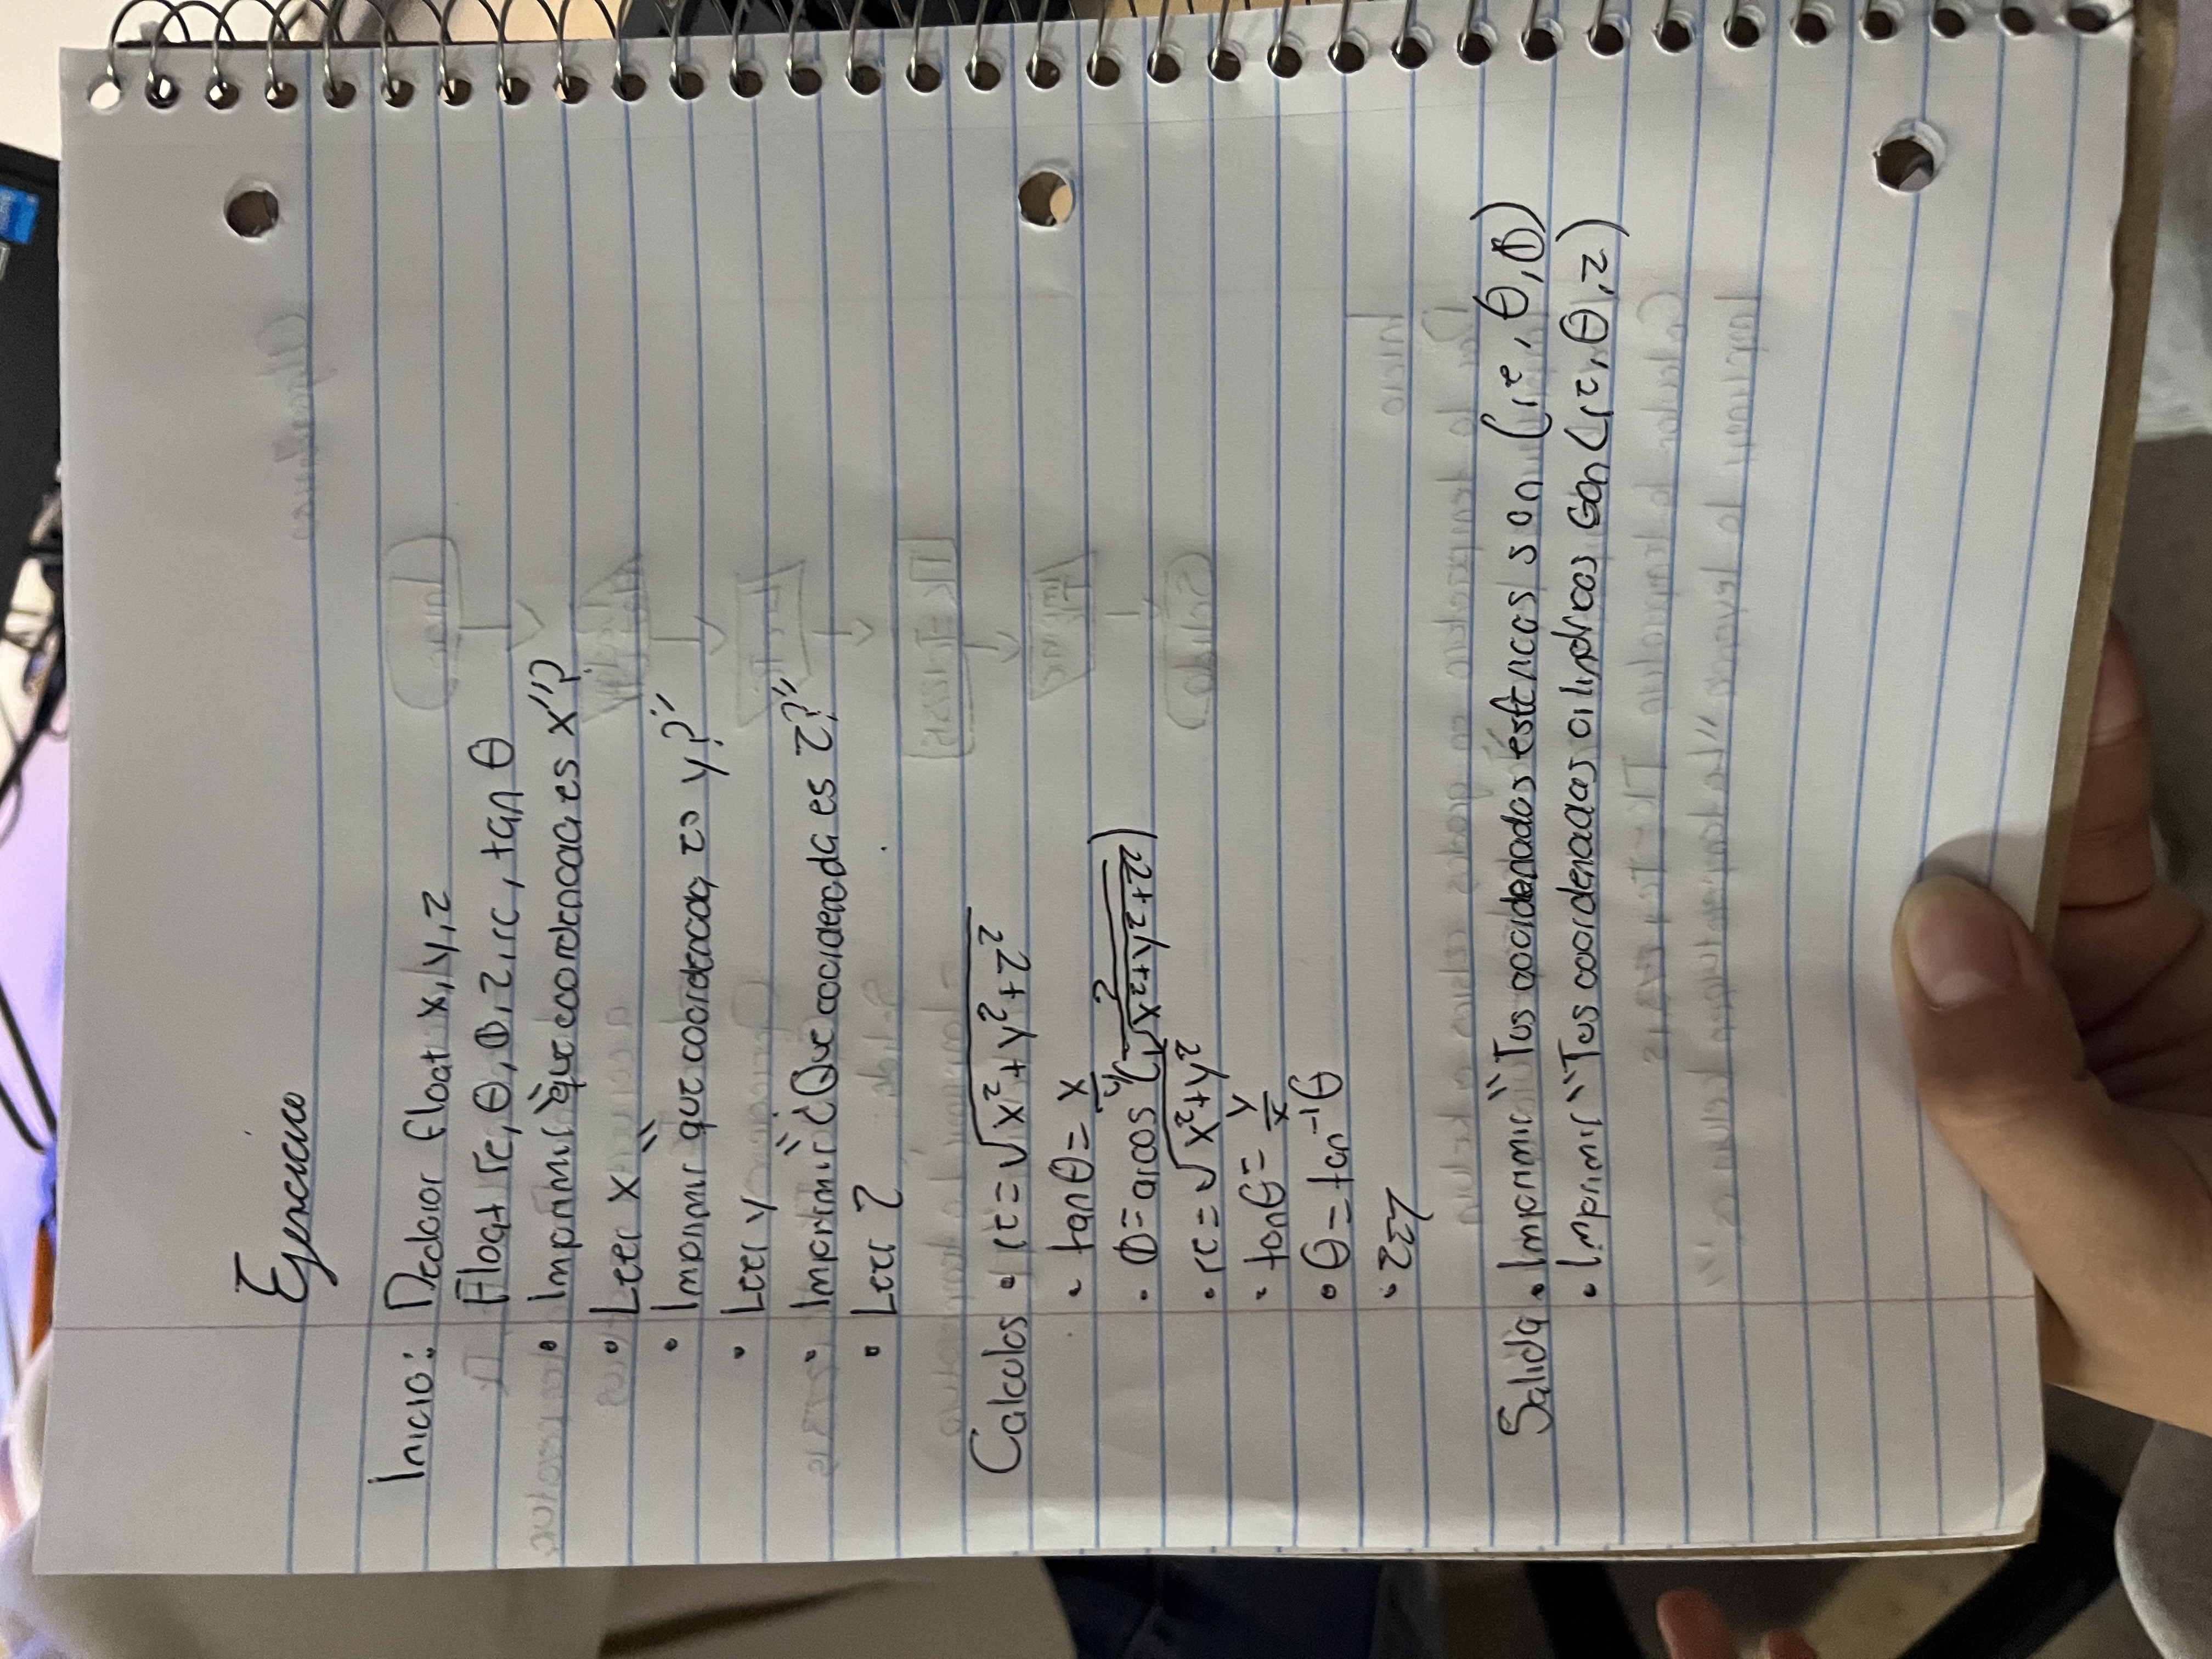 Ejercicico
Inicio: Declarar float x, y, z
Float re, θ, Φ, z, rc, tan θ
• Imprimir "que coordenada es x"?
• Leer x
• Imprimir "que coordenada es y?"
• Leer y
• Imprimir "¿Que coordenada es z?"
• Leer z
Calculos • re = √x²+y²+z²
• tan θ = x/y
• Φ = arcos (z/√x²+y²+z²)
• rc = √x²+y²
• tan θ = y/x
• θ = tan⁻¹ θ
• z=z
Salida • Imprimir "Tus coordenadas esfericas son (re, θ, Φ)
• Imprimir "Tus coordenadas cilindricas son (rc, θ, z)